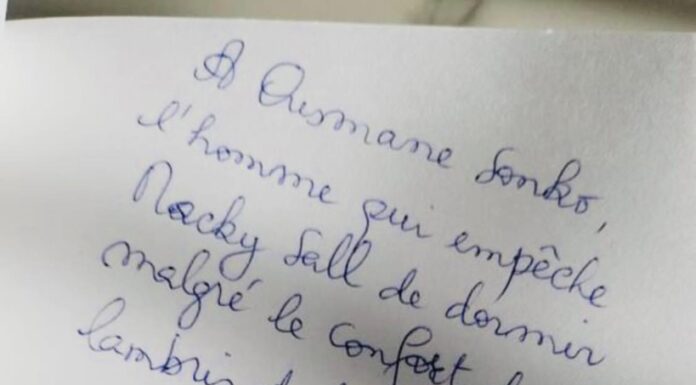 A Ousmane Sonko,
l'homme qui empêche
Macky Sall de dormir
malgré le confort
lambris